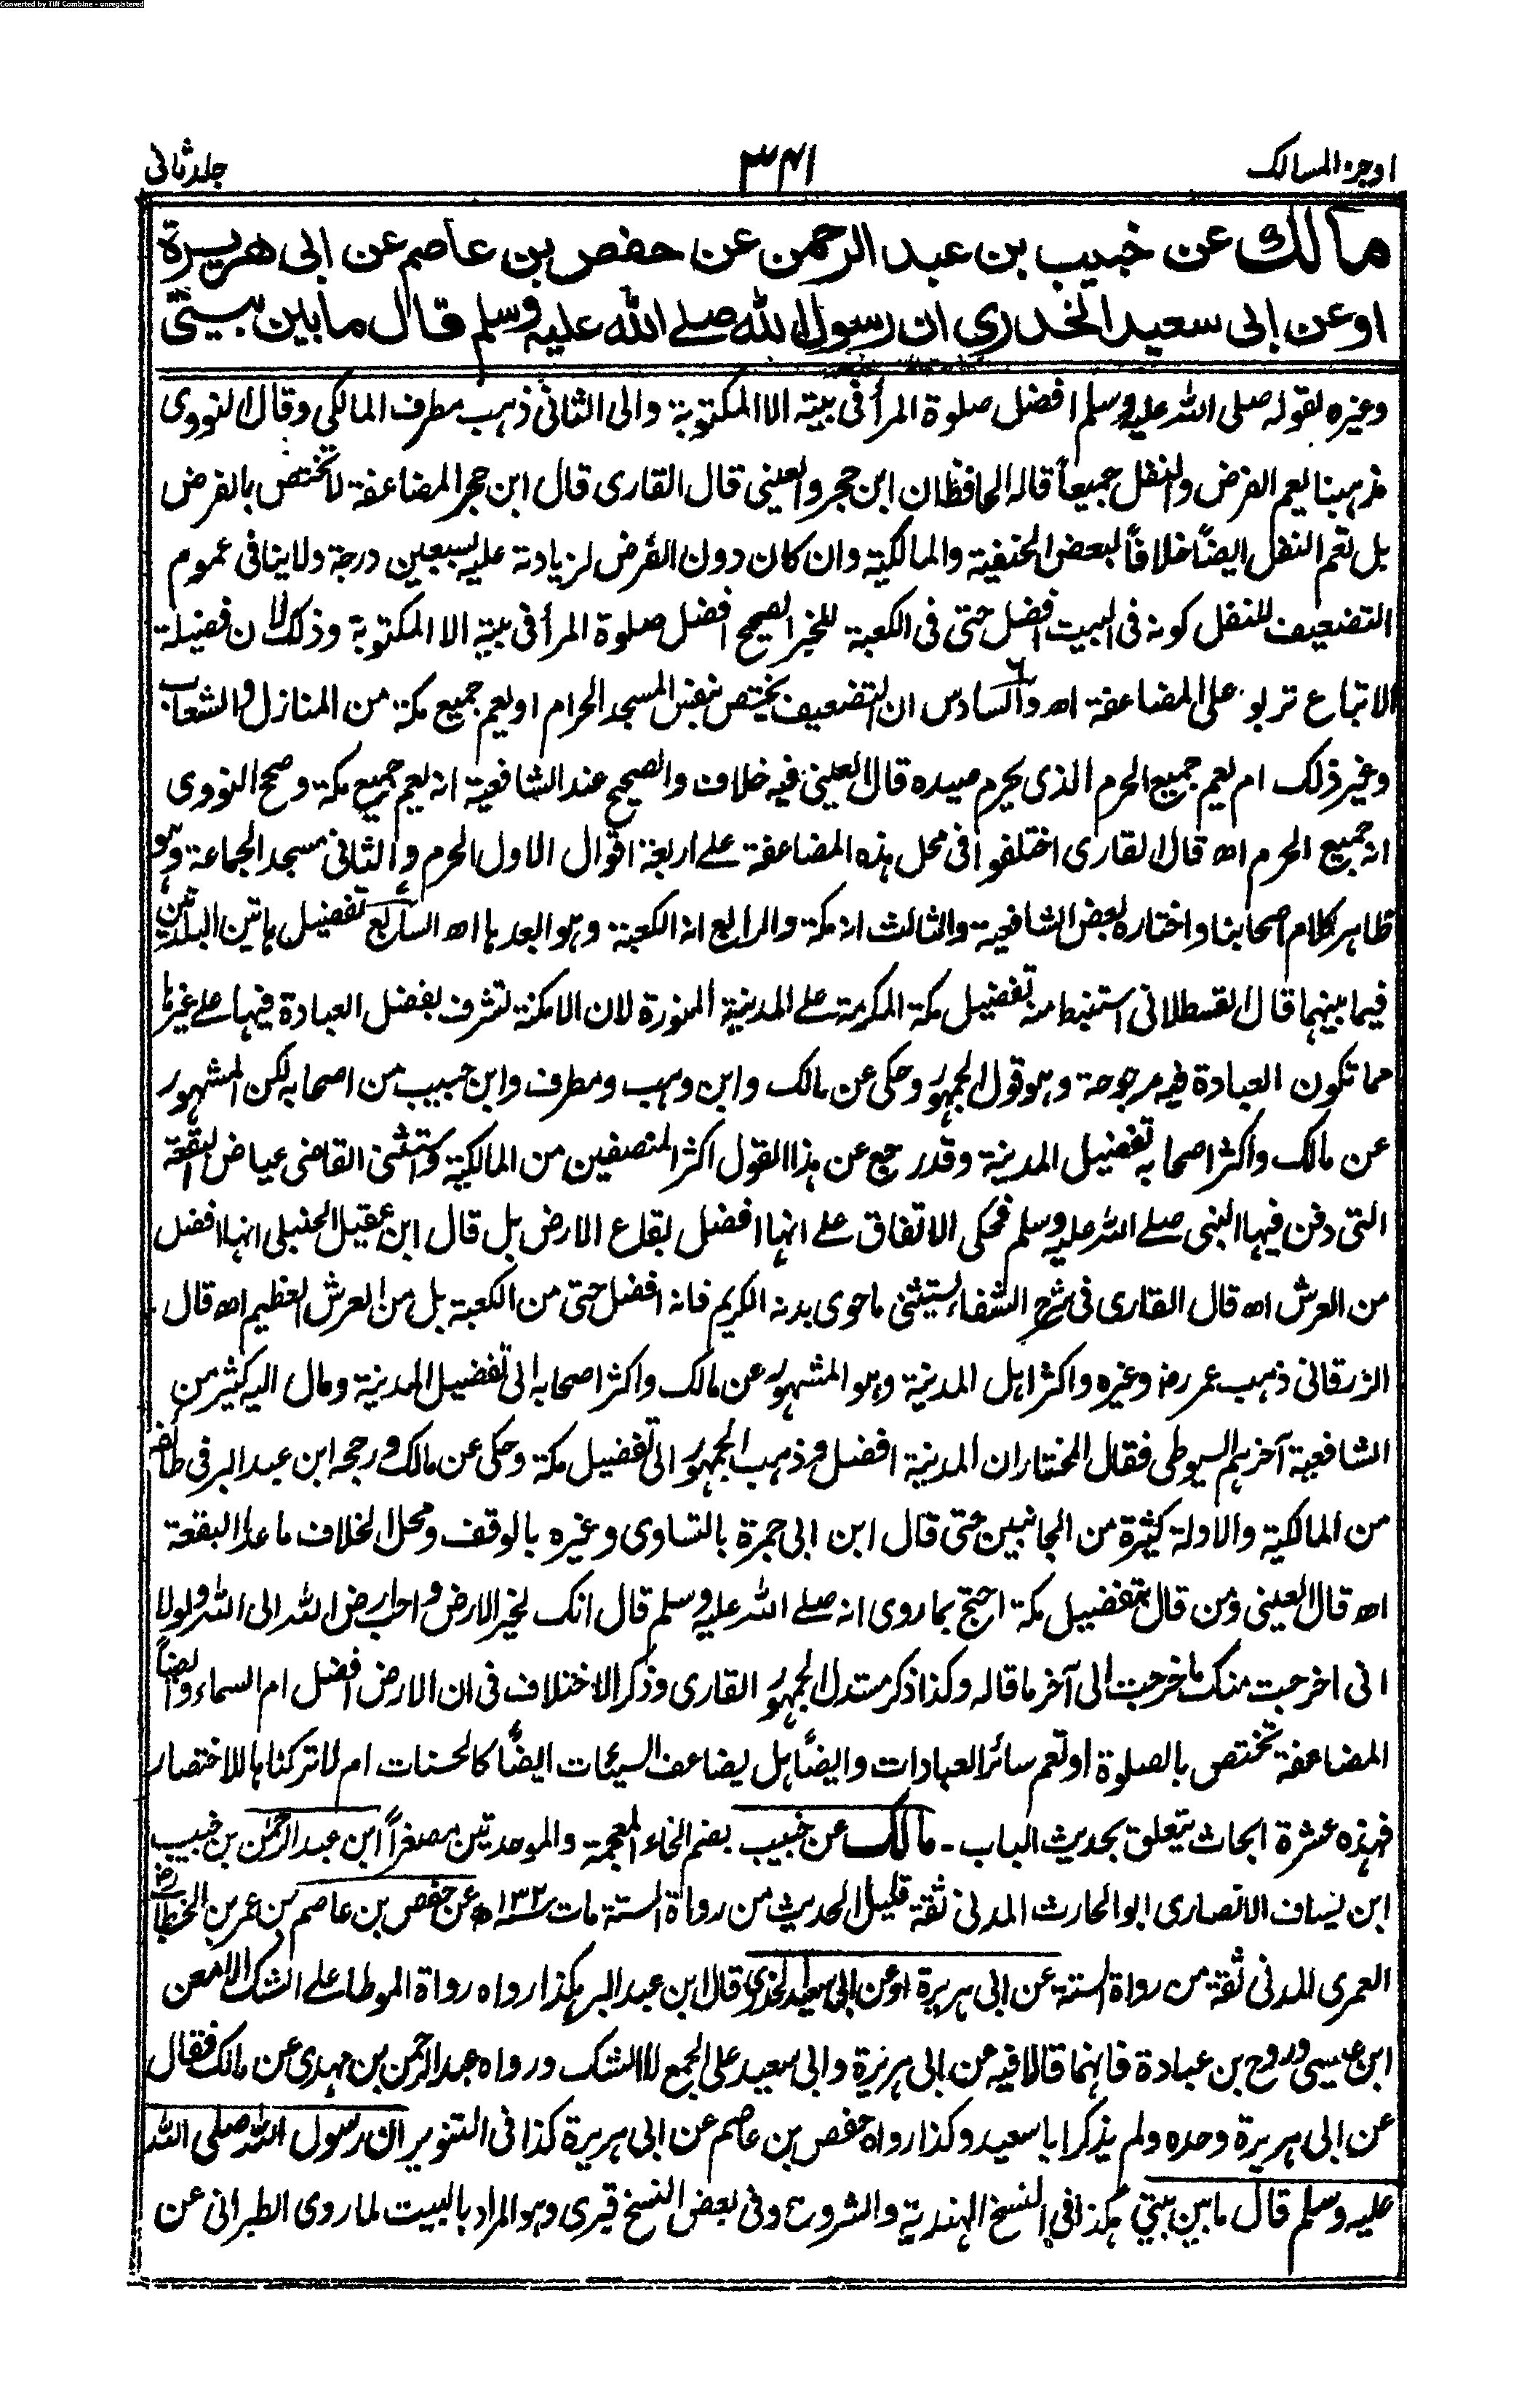 Converted by Tiff Combine - unregistered
اوجز المسالك ٣٤١ جلد ثانی
مالك عن خبيب بن عبد الرحمن عن حفص بن عاصم عن ابی هريرة
او عن ابی سعيد الخدري ان رسول الله صلے الله عليه وسلم قال ما بين بيتی
وغيره لقوله صلی الله عليه وسلم افضل صلوة المرأ فی بيته الا المكتوبة والی الثانی ذهب مطرف المالكی وقال النووی
مذهبنا يعم الفرض والنفل جميعاً قاله الحافظان ابن حجر والعينی قال القاری قال ابن حجر المضاعفة لا تختص بالفرض
بل تعم النفل ايضاً خلافاً لبعض الحنفية والمالكية وان كان دون الفرض لزيادته عليه بسبعين درجة ولا ينافی عموم
التضعيف للنفل كونه فی البيت افضل حتی فی الكعبة للخبر الصحيح افضل صلوة المرأ فی بيته الا المكتوبة وذلك لان فضيلة
الاتباع تربو علی المضاعفة اھ والسادس ان التضعيف يختص بنفس المسجد الحرام او يعم جميع مكة من المنازل والشعاب
وغير ذلك ام يعم جميع الحرم الذی يحرم صيده قال العينی فيه خلاف والصحيح عند الشافعية انه يعم جميع مكة وصحح النووی
انه جميع الحرم اھ قال القاری اختلفوا فی محل هذه المضاعفة علے اربعة اقوال الاول الحرم والثانی مسجد الجماعة وهو
ظاهر كلام اصحابنا واختاره بعض الشافعية والثالث انه مكة والرابع انه الكعبة وهو ابعدها اھ السابع تفضيل هاتين البلدتين
فيما بينهما قال القسطلانی استنبط منه تفضيل مكة المكرمة علے المدينة المنورة لان الامكنة تشرف بفضل العبادة فيها علے غيرها
مما تكون العبادة فيه مرجوحة وهو قول الجمهور وحكی عن مالك وابن وهب ومطرف وابن حبيب من اصحابه لكن المشهور
عن مالك واكثر اصحابه تفضيل المدينة وقد رجع عن هذا القول اكثر المنصفين من المالكية واستثنی القاضی عياض البقعة
التی دفن فيها النبی صلے الله عليه وسلم فحكی الاتفاق علے انها افضل بقاع الارض بل قال ابن عقيل الحنبلی انها افضل
من العرش اھ قال القاری فی شرح الشفاء يستثنی ما حوی بدنه الكريم فانه افضل حتی من الكعبة بل من العرش العظيم اھ قال
الزرقانی ذهب عمر رضـ وغيره واكثر اهل المدينة وهو المشهور عن مالك واكثر اصحابه الی تفضيل المدينة ومال اليه كثير من
الشافعية آخرهم السيوطی فقال المختار ان المدينة افضل وذهب الجمهور الی تفضيل مكة وحكی عن مالك ورجحه ابن عبد البر فی طائفة
من المالكية والادلة كثيرة من الجانبين حتی قال ابن ابی جمرة بالتساوی وغيره بالوقف ومحل الخلاف ما عدا البقعة
اھ قال العينی ومن قال بتفضيل مكة احتج بما روی انه صلے الله عليه وسلم قال انك لخير الارض واحب ارض الله الی الله ولولا
انی اخرجت منك ما خرجت الی آخر ما قاله وكذا ذكر مستدل الجمهور القاری وذكر الاختلاف فی ان الارض افضل ام السماء وايضاً
المضاعفة تختص بالصلوة او تعم سائر العبادات وايضاً هل يضاعف السيئات ايضاً كالحسنات ام لا تركناها للاختصار
فهذه عشرة ابحاث يتعلق بحديث الباب - مالك عن خبيب بضم الخاء المعجمة والموحدتين مصغراً ابن عبد الرحمن بن خبيب
ابن يساف الانصاری ابو الحارث المدنی ثقة قليل الحديث من رواة الستة مات سنة ١٣٢ھ عن حفص بن عاصم بن عمر بن الخطاب رضـ
العمری المدنی ثقة من رواة الستة عن ابی هريرة او عن ابی سعيد الخدری قال ابن عبد البر هكذا رواه رواة الموطا علے الشك الا معن
ابن عيسی وروح بن عبادة فانهما قالا فيه عن ابی هريرة وابی سعيد علی الجمع لا الشك ورواه عبد الرحمن بن مهدی عن مالك فقال
عن ابی هريرة وحده ولم يذكر ابا سعيد وكذا رواه حفص بن عاصم عن ابی هريرة كذا فی التنوير ان رسول الله صلی الله
عليه وسلم قال ما بين بيتي هكذا فی النسخ الهندية والشروح وفی بعض النسخ قبری وهو المراد بالبيت لما روی الطبرانی عن